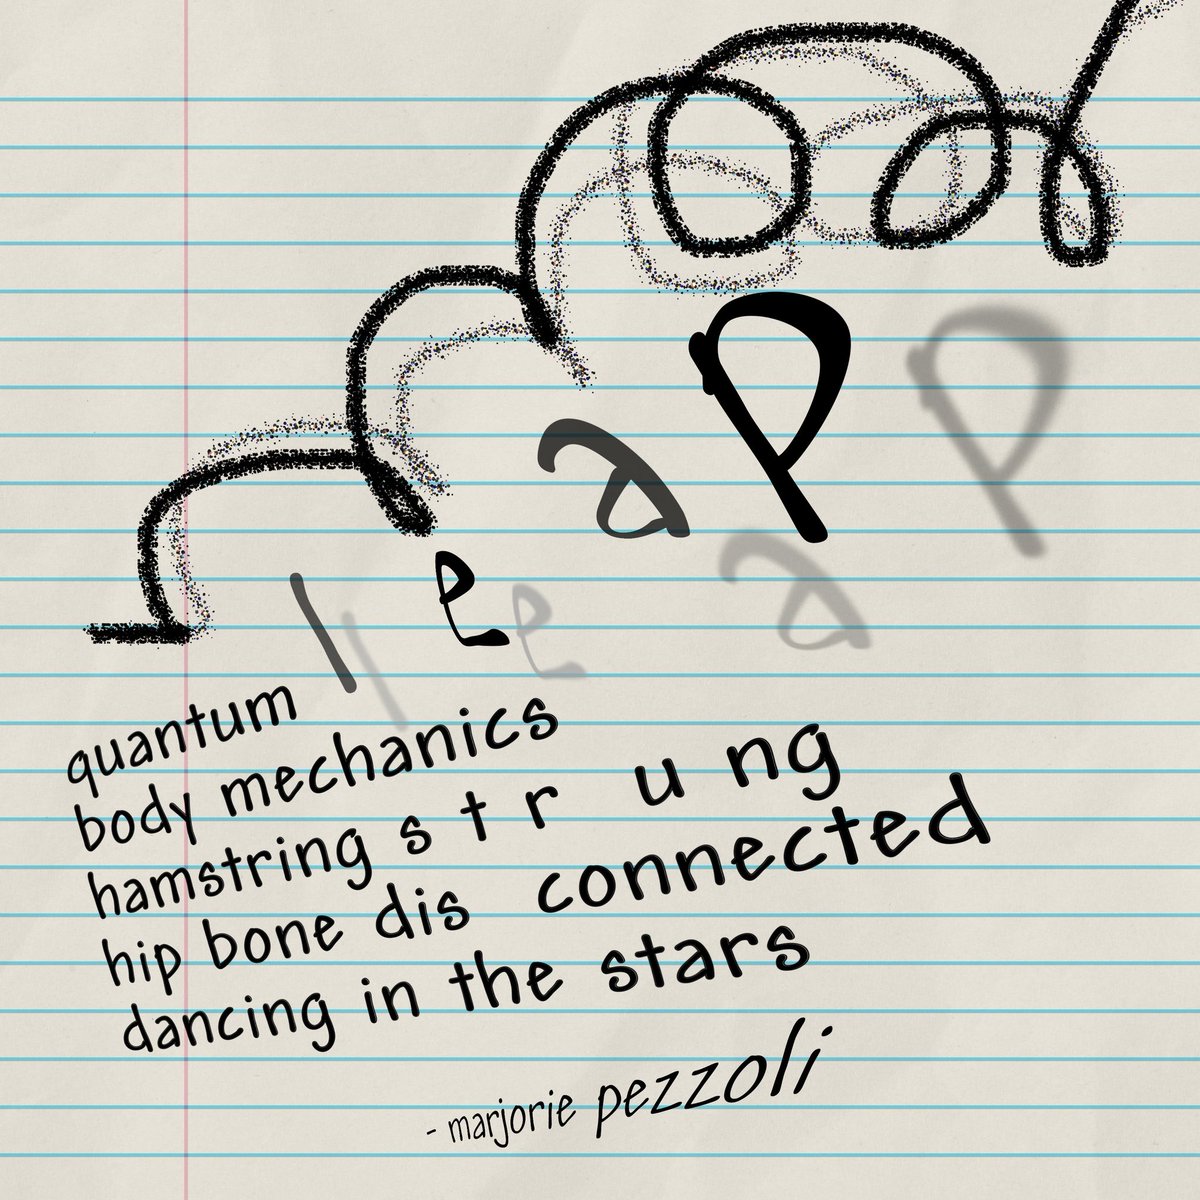 leaP
quantum
body mechanics
hamstring s t r u ng
hip bone dis connected
dancing in the stars
- marjorie pezzoli